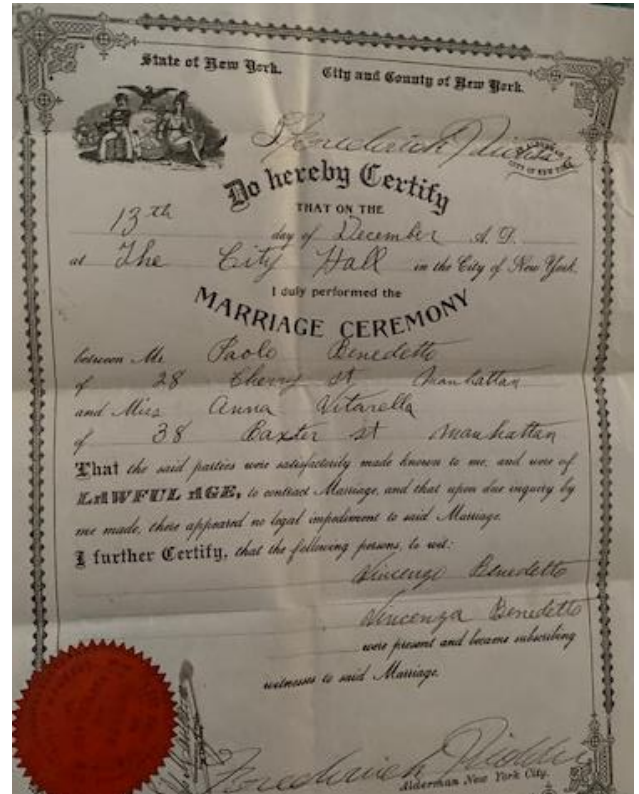 State of New York. City and County of New York.
I, Frederick
CITY OF NEW YORK
Do hereby Certify
THAT ON THE
13th day of December A.D.
at The City Hall in the City of New York.
I duly performed the
MARRIAGE CEREMONY
between Mr. Paolo Benedetto
of 28 Cherry st Manhattan
and Miss Anna Vitarella
of 38 Baxter st Manhattan
That the said parties were satisfactorily made known to me, and were of
LAWFUL AGE, to contract Marriage, and that upon due inquiry by
me made, there appeared no legal impediment to said Marriage.
I further Certify, that the following persons, to wit:
Vincenzo Benedetto
Vincenza Benedetto
were present and became subscribing
witnesses to said Marriage.
Frederick
Alderman New York City.